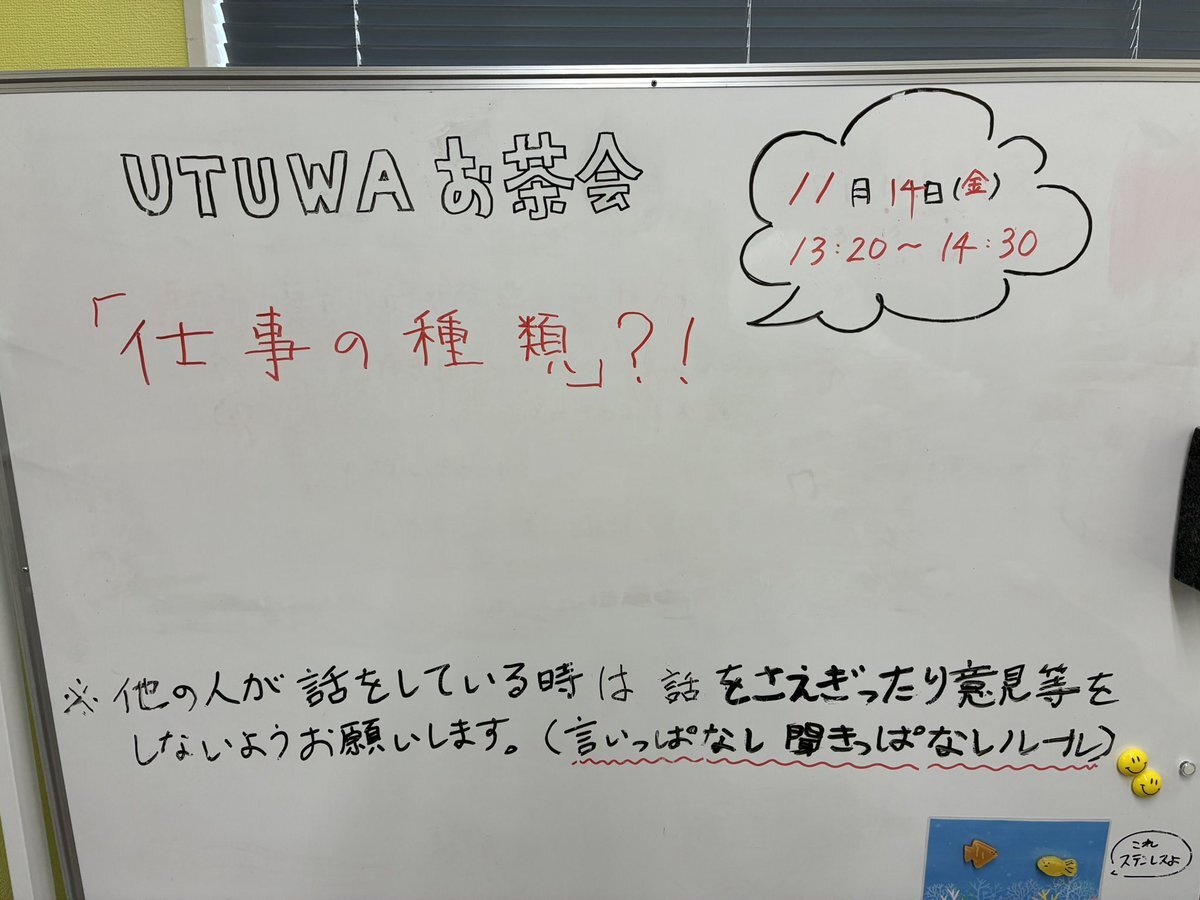 UTUWAお茶会
11月14日(金)
13:20～14:30
「仕事の種類」?!
※他の人が話をしている時は 話をさえぎったり意見等を
しないようお願いします。(言いっぱなし 聞きっぱなしルール)
これ
ステンレスよ